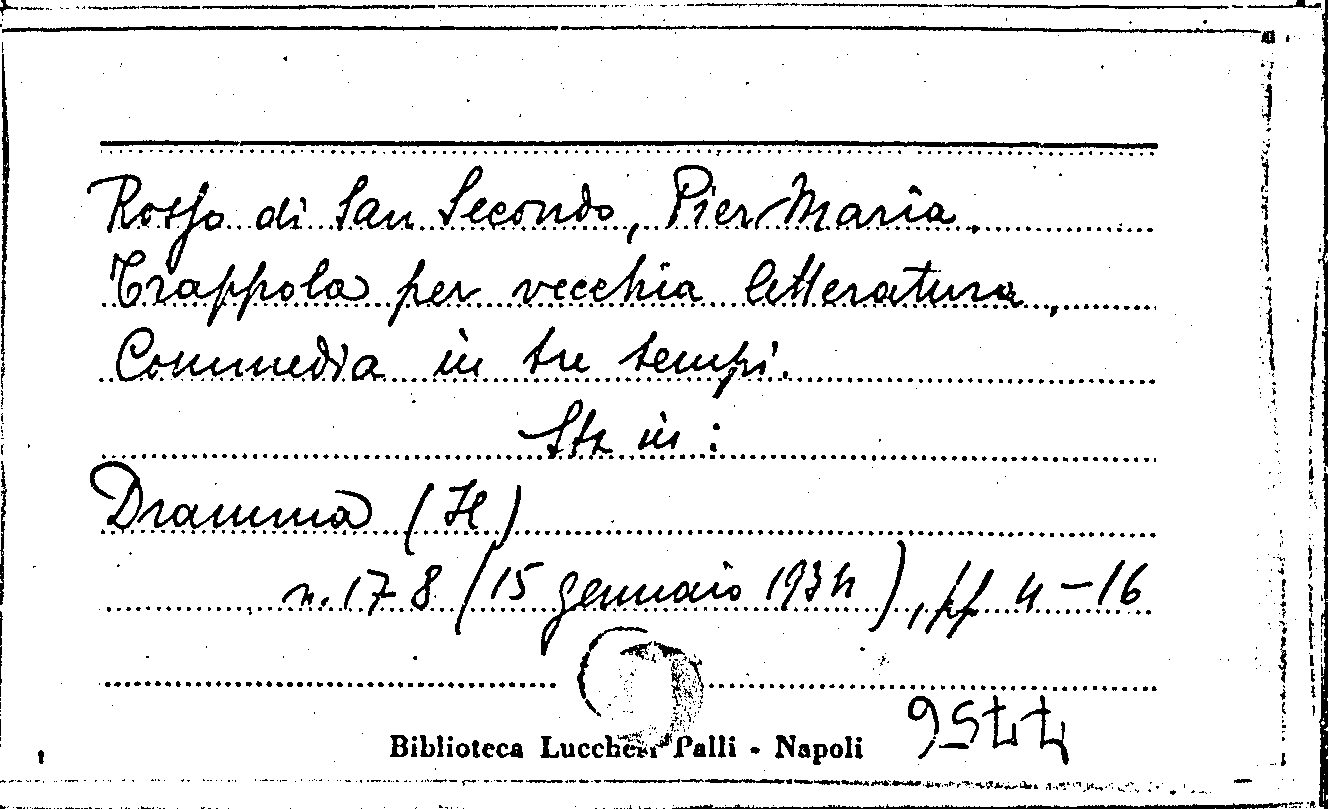 Rosso di San Secondo, Pier Maria.
Trappola per vecchia letteratura,
Commedia in tre tempi.
Sta in:
Dramma (Il)
n. 178 (15 gennaio 1934), pp 4-16
Biblioteca Lucchesi Palli - Napoli